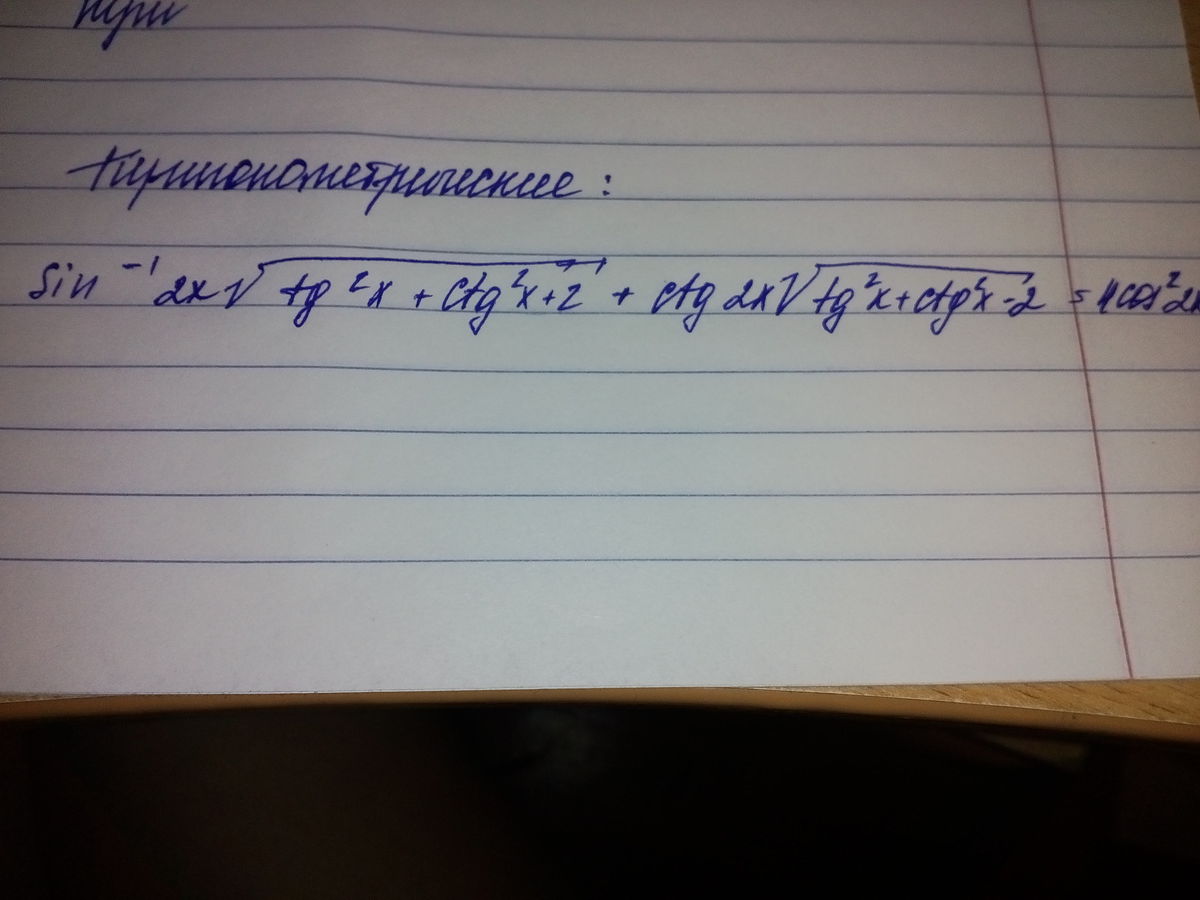 при
тригонометрические:
sin⁻¹ 2x√(tg²x + ctg²x+2) + ctg 2x√(tg²x+ctg²x-2) = 4cos²2x